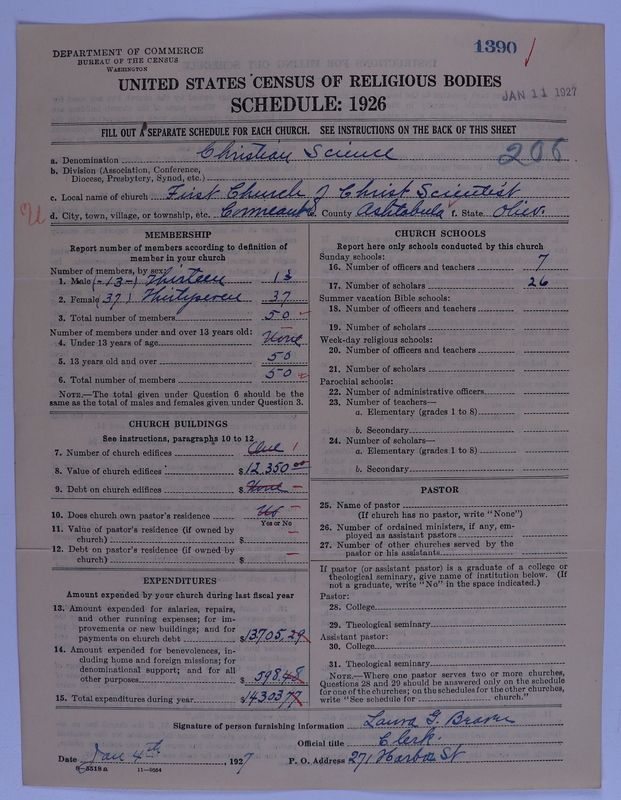 DEPARTMENT OF COMMERCE
BUREAU OF THE CENSUS
WASHINGTON
1390
JAN 11 1927
UNITED STATES CENSUS OF RELIGIOUS BODIES
SCHEDULE: 1926
FILL OUT A SEPARATE SCHEDULE FOR EACH CHURCH. SEE INSTRUCTIONS ON THE BACK OF THIS SHEET
206
a. Denomination Christian Science
b. Division (Association, Conference,
Diocese, Presbytery, Synod, etc.)
c. Local name of church First Church of Christ Scientist
d. City, town, village, or township, etc. Conneaut e. County Ashtabula f. State Ohio.
MEMBERSHIP
Report number of members according to definition of
member in your church
Number of members, by sex:
1. Male (-13-) Thirteen 13
2. Female (37) Thirtyseven 37
3. Total number of members 50
Number of members under and over 13 years old:
4. Under 13 years of age None
5. 13 years old and over 50
6. Total number of members 50
NOTE.—The total given under Question 6 should be the
same as the total of males and females given under Question 3.
CHURCH BUILDINGS
See instructions, paragraphs 10 to 12
7. Number of church edifices One 1
8. Value of church edifices $12,350.00
9. Debt on church edifices $ None
10. Does church own pastor's residence No
Yes or No
11. Value of pastor's residence (if owned by
church) $
12. Debt on pastor's residence (if owned by
church) $
EXPENDITURES
Amount expended by your church during last fiscal year
13. Amount expended for salaries, repairs,
and other running expenses; for im-
provements or new buildings; and for
payments on church debt $13705.29
14. Amount expended for benevolences, in-
cluding home and foreign missions; for
denominational support; and for all
other purposes $ 598.48
15. Total expenditures during year $14303.77
CHURCH SCHOOLS
Report here only schools conducted by this church
Sunday schools:
16. Number of officers and teachers 7
17. Number of scholars 26
Summer vacation Bible schools:
18. Number of officers and teachers
19. Number of scholars
Week-day religious schools:
20. Number of officers and teachers
21. Number of scholars
Parochial schools:
22. Number of administrative officers
23. Number of teachers—
a. Elementary (grades 1 to 8)
b. Secondary
24. Number of scholars—
a. Elementary (grades 1 to 8)
b. Secondary
PASTOR
25. Name of pastor
(If church has no pastor, write "None")
26. Number of ordained ministers, if any, em-
ployed as assistant pastors
27. Number of other churches served by the
pastor or his assistants
If pastor (or assistant pastor) is a graduate of a college or
theological seminary, give name of institution below. (If
not a graduate, write "No" in the space indicated.)
Pastor:
28. College
29. Theological seminary
Assistant pastor:
30. College
31. Theological seminary
NOTE.—Where one pastor serves two or more churches,
Questions 28 and 29 should be answered only on the schedule
for one of the churches; on the schedules for the other churches,
write "See schedule for church."
Signature of person furnishing information Laura G.
Official title Clerk.
Date Jan 4th, 1927 P. O. Address 271 Harbor St
8—5518a 11—9564